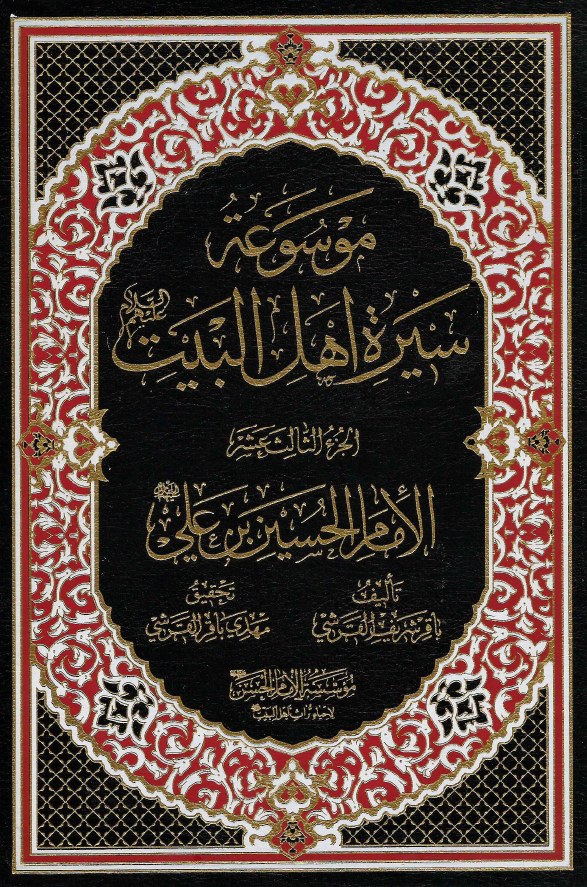 موسوعة
سيرة أهل البيت عليهم السلام
الجزء الثالث عشر
الإمام الحسين بن علي عليه السلام
تأليف
باقر شريف القرشي
تحقيق
مهدي باقر القرشي
مؤسسة الإمام الحسن
لإحياء تراث أهل البيت